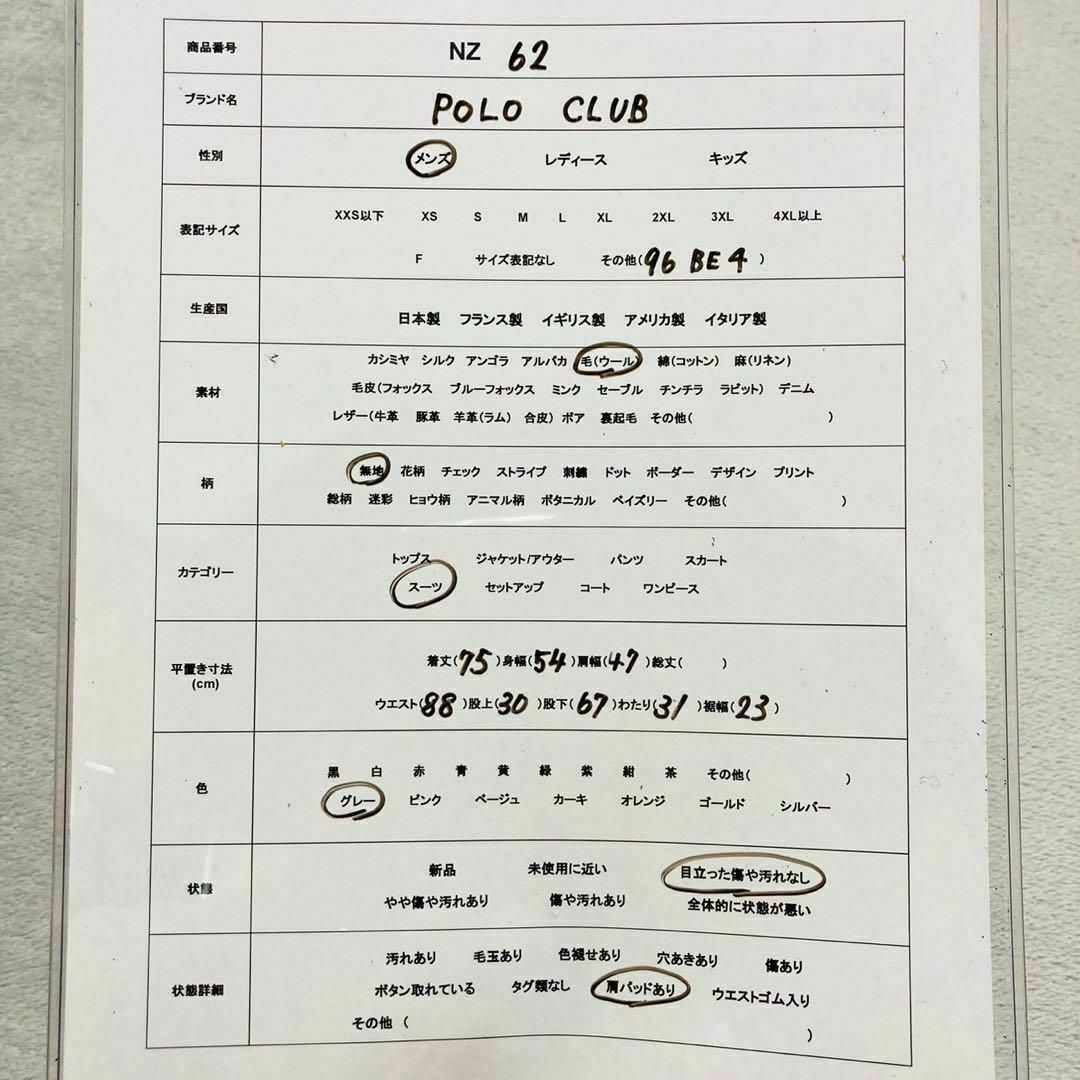 商品番号 NZ 62
ブランド名 POLO CLUB
性別 メンズ レディース キッズ
表記サイズ
XXS以下 XS S M L XL 2XL 3XL 4XL以上
F サイズ表記なし その他(96 BE 4 )
生産国 日本製 フランス製 イギリス製 アメリカ製 イタリア製
素材
カシミヤ シルク アンゴラ アルパカ 毛(ウール) 綿(コットン) 麻(リネン)
毛皮(フォックス ブルーフォックス ミンク セーブル チンチラ ラビット) デニム
レザー(牛革 豚革 羊革(ラム) 合皮) ボア 裏起毛 その他( )
柄
無地 花柄 チェック ストライプ 刺繍 ドット ボーダー デザイン プリント
総柄 迷彩 ヒョウ柄 アニマル柄 ボタニカル ペイズリー その他( )
カテゴリー
トップス ジャケット/アウター パンツ スカート
スーツ セットアップ コート ワンピース
平置き寸法
(cm)
着丈(75)身幅(54)肩幅(47)総丈( )
ウエスト(88)股上(30)股下(67)わたり(31)裾幅(23)
色
黒 白 赤 青 黄 緑 紫 紺 茶 その他( )
グレー ピンク ベージュ カーキ オレンジ ゴールド シルバー
状態
新品 未使用に近い 目立った傷や汚れなし
やや傷や汚れあり 傷や汚れあり 全体的に状態が悪い
状態詳細
汚れあり 毛玉あり 色褪せあり 穴あきあり 傷あり
ボタン取れている タグ類なし 肩パッドあり ウエストゴム入り
その他 ( )